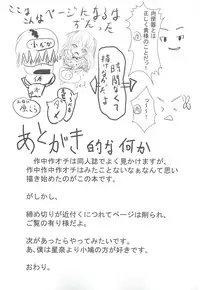 ここな
こんなページになるは
ちだった
時間なくて
描けなかった
肉便器とは
正しく貴様のことだっ!
①
②
③
あとがき的な何か
作中作オチは同人誌でよく見かけますが、
作中作中作オチはみたことないなぁなんて思い
描き始めたのがこの本です。
がしかし、
締め切りが近付くにつれてページは削られ、
ご覧の有り様だよ。
次があったらやってみたいです。
あ、僕は星奈より小鳩の方が好きです。
おわり。